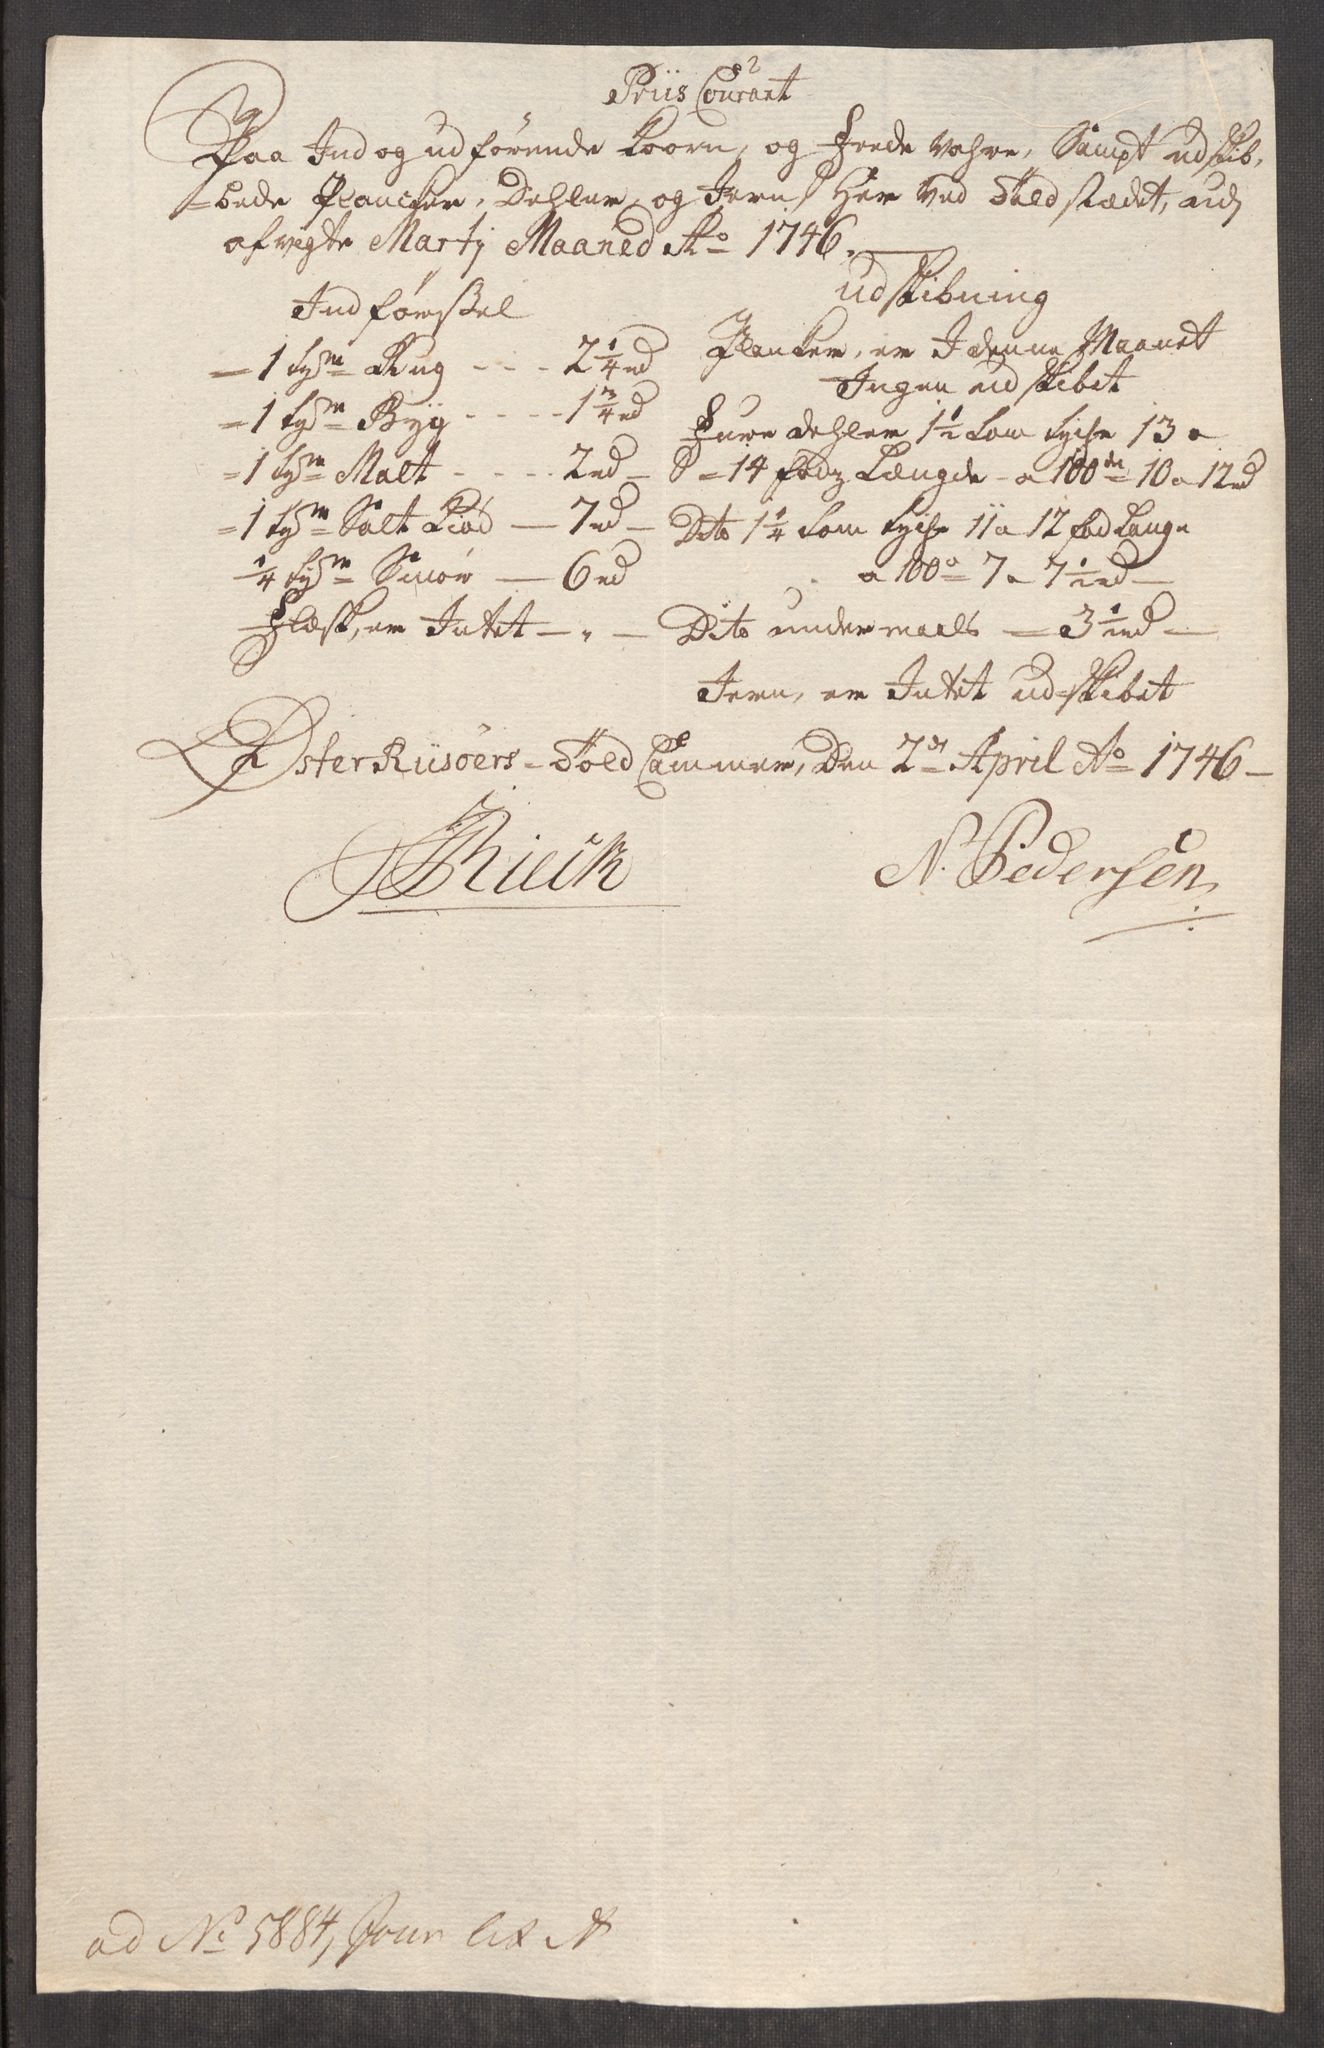 Priis Courant
Paa Ind og udførende Koorn, og Feede Vahre, Sampt udskib,
=bede Plancker, Dehler, og Jern, Her Ved Toldstædet, udj
afvigte Martj Maaned Ao 1746.
Indførsel
— 1 tønde Rug - - - 2 1/4 rd
= 1 tønde Byg - - - - 1 3/4 rd
= 1 tønde Malt - - - - 2 rd —
= 1 tønde Salt Kiød — 7 rd —
1/4 tønde Smør — 6 rd
Flæsk, er Intet — " —
udskibning
Plancker, er I denne Maanet
Ingen udskibet
Furre dehler 1 1/2 tom tycke 13 a
14 fods Længde - a 100de 10 a 12 rd
Dito 1 1/4 tom tycke 11 a 12 fod Lange
a 100de 7 a 7 1/2 rd —
Dito undermaals — 3 1/2 rd —
Jern, er Intet udskibet
ØsterRiisöers Told Cammer, Den 2den April Ao 1746 —
Rieck
N. Pedersen
ad No 5884, Jour lit A